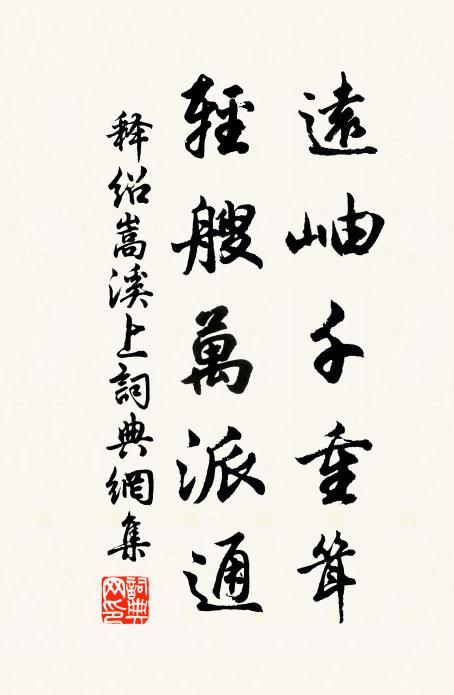 遠岫千重聳
輕艘萬派通
释绍嵩溪上詞典網集
詞典網印